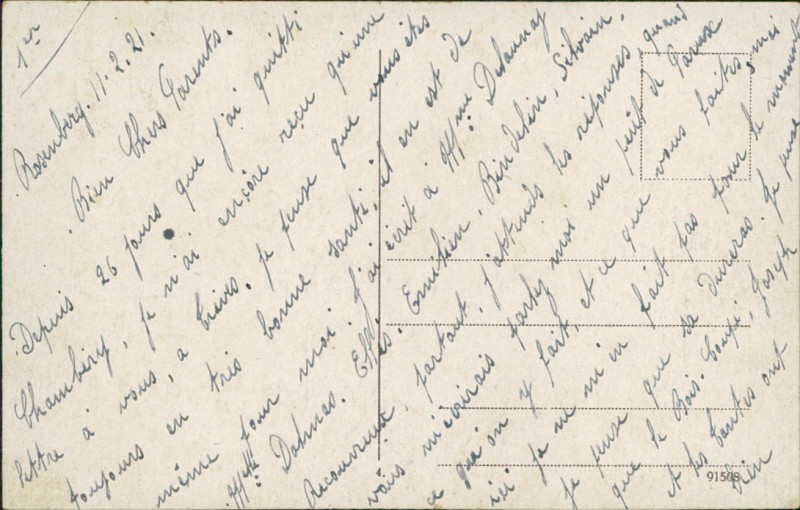 1er
Rosenberg. 11.2.21.
Bien Chers Parents.
Depuis 26 jours que j'ai quitté
Chambéry, je n'ai encore reçu qu'une
lettre à vous, a Trèves. Je pense que vous êtes
toujours en très bonne santé, il en est de
même pour moi. J'ai écrit à Mme Delaunay
Melle Dehnas. Effis. Emilien, Bindelin, Silvain,
Recouvreux, partout, j'attends les réponses, quand
vous m'écrirais parlez moi un petit de Paroux
a qu'on y fait, et ce que vous faites, moi
ici je ne m'en fait pas pour le moment
je pense que sa dureras. Je pense
que le Bois. Coupé, Joseph
et les Tantes ont
bien
91508